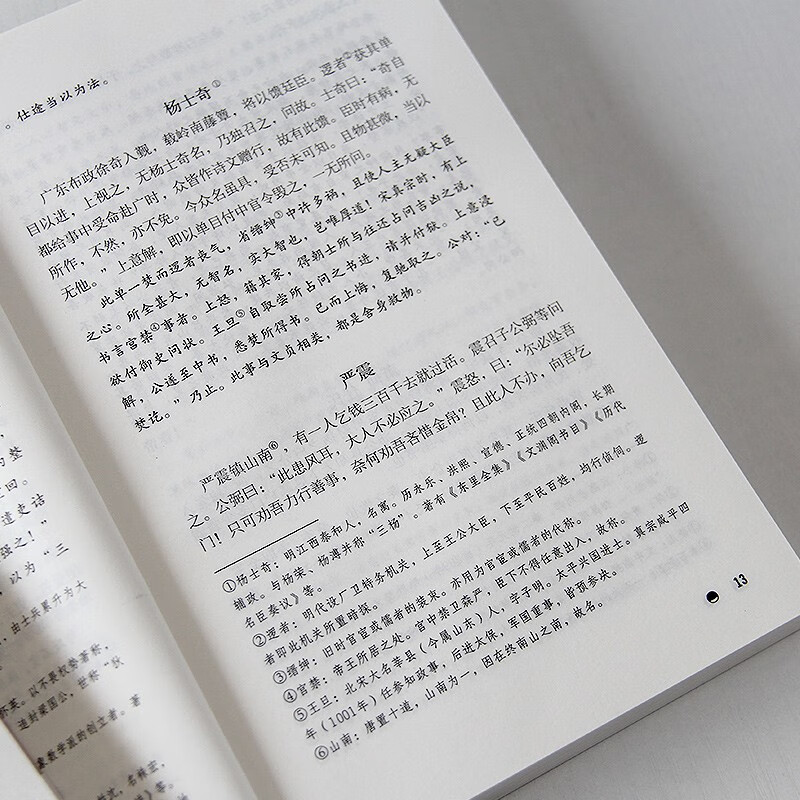 。仕途当以为法。
杨士奇①
广东布政徐奇入觐，载岭南藤簟，将以馈廷臣。逻者②获其单
目以进，上视之，无杨士奇名，乃独召之，问故。士奇曰：“奇自
都给事中受命赴广时，众皆作诗文赠行，故有此馈。臣时有病，无
所作，不然，亦不免。今众名虽具，受否未可知。且物甚微，当以
无他。”上意解，即以单目付中官令毁之，一无所问。
此单一焚而逻者丧气，省缙绅③中许多祸，且使人主无疑大臣
之心。所全甚大，无智名，实大智也，岂唯厚道！宋真宗时，有上
书言宫禁④事者。上怒，籍其家，得朝士所与往还占问吉凶之说，
欲付御史问状。王旦⑤自取尝所占问之书进，请并付狱。上意浸
解，公遂至中书，悉焚所得书。已而上悔，复驰取之。公对：“已
焚讫。”乃止。此事与文贞相类，都是舍身救物。
严震
严震镇山南⑥，有一人乞钱三百千去就过活。震召子公弼等问
之。公弼曰：“此患风耳，大人不必应之。”震怒，曰：“尔必坠吾
门！只可劝吾力行善事，奈何劝吾吝惜金帛？且此人不办，向吾乞
①杨士奇：明江西泰和人，名寓。历永乐、洪熙、宣德、正统四朝内阁，长期
辅政。与杨荣、杨溥并称“三杨”。著有《东里全集》《文渊阁书目》《历代
名臣奏议》等。
②逻者：明代设厂卫特务机关，上至王公大臣，下至平民百姓，均行侦伺。逻
者即此机关所置暗探。
③缙绅：旧时官宦或儒者的装束。亦用为官宦或儒者的代称。
④宫禁：帝王所居之处。宫中禁卫森严，臣下不得任意出入，故称。
⑤王旦：北宋大名莘县（今属山东）人，字子明。太平兴国进士。真宗咸平四
年（1001年）任参知政事，后进太保，军国重事，皆预参决。
⑥山南：唐置十道，山南为一，因在终南山之南，故名。
13
回。
道吏诘
强之！”
以为“三
由士兵累升为大
以不畏权势著称，
追封梁国公，世称“狄
象数学派的创立者。著